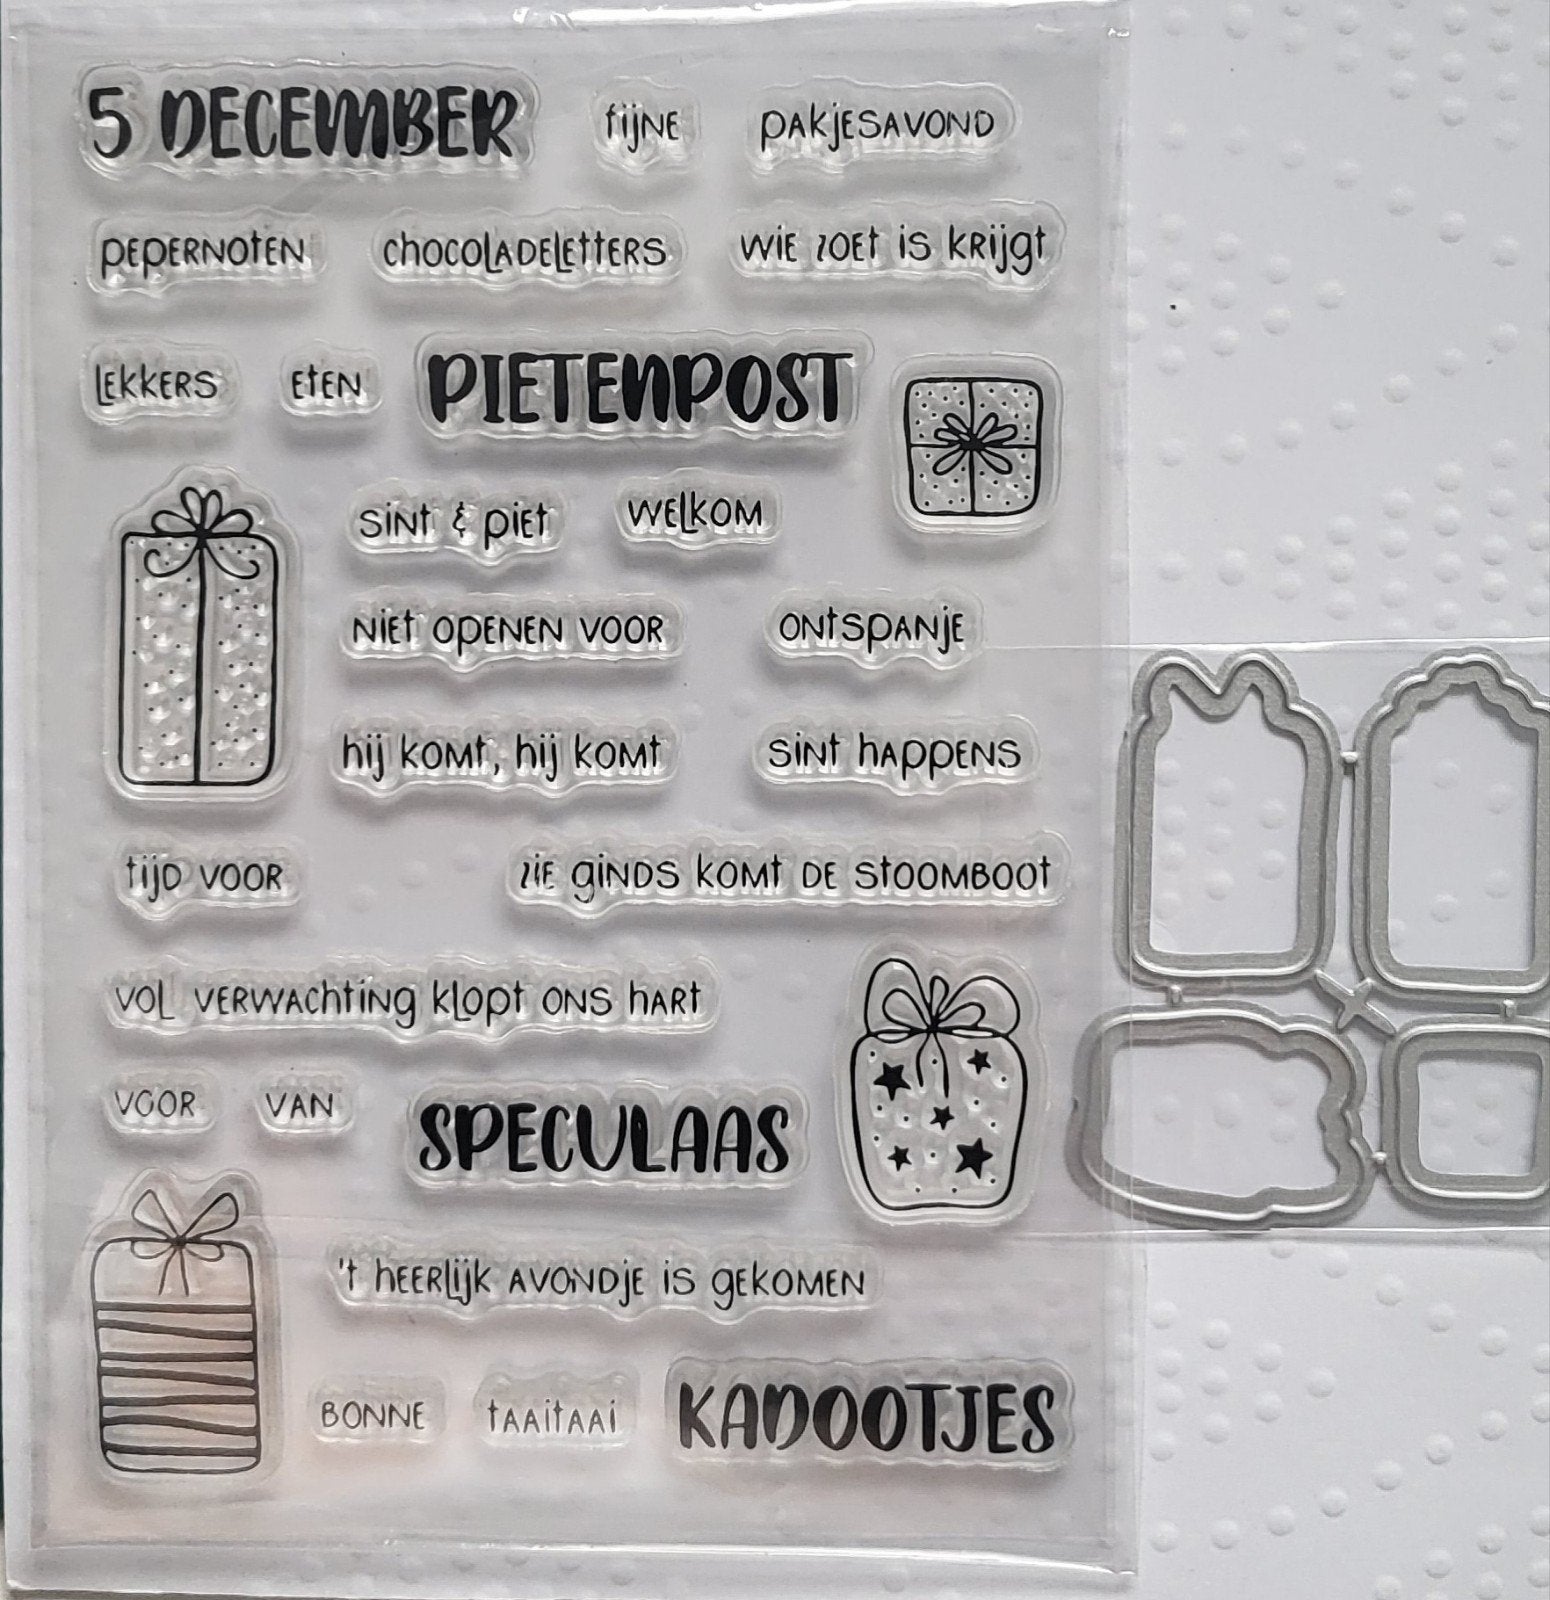 5 DECEMBER fijNE pAkjESAVOND
pEpERNOtEN chocoLAdELEttERS wiE zoEt is kRijgt
LEkkERS EtEN PIETENPOST
sint & piEt WELKOM
NiEt opENEN VOOR ONtSpANjE
hij komt, hij komt sint hAppENS
tijD VOOR ziE giNDS komt DE StOOMBOOt
VOL VERWAchtiNg kLopt ONS hARt
VOOR VAN SPECULAAS
't hEERLijk AVONDjE is gEKOMEN
BONNE tAAitAAi KADOOTJES